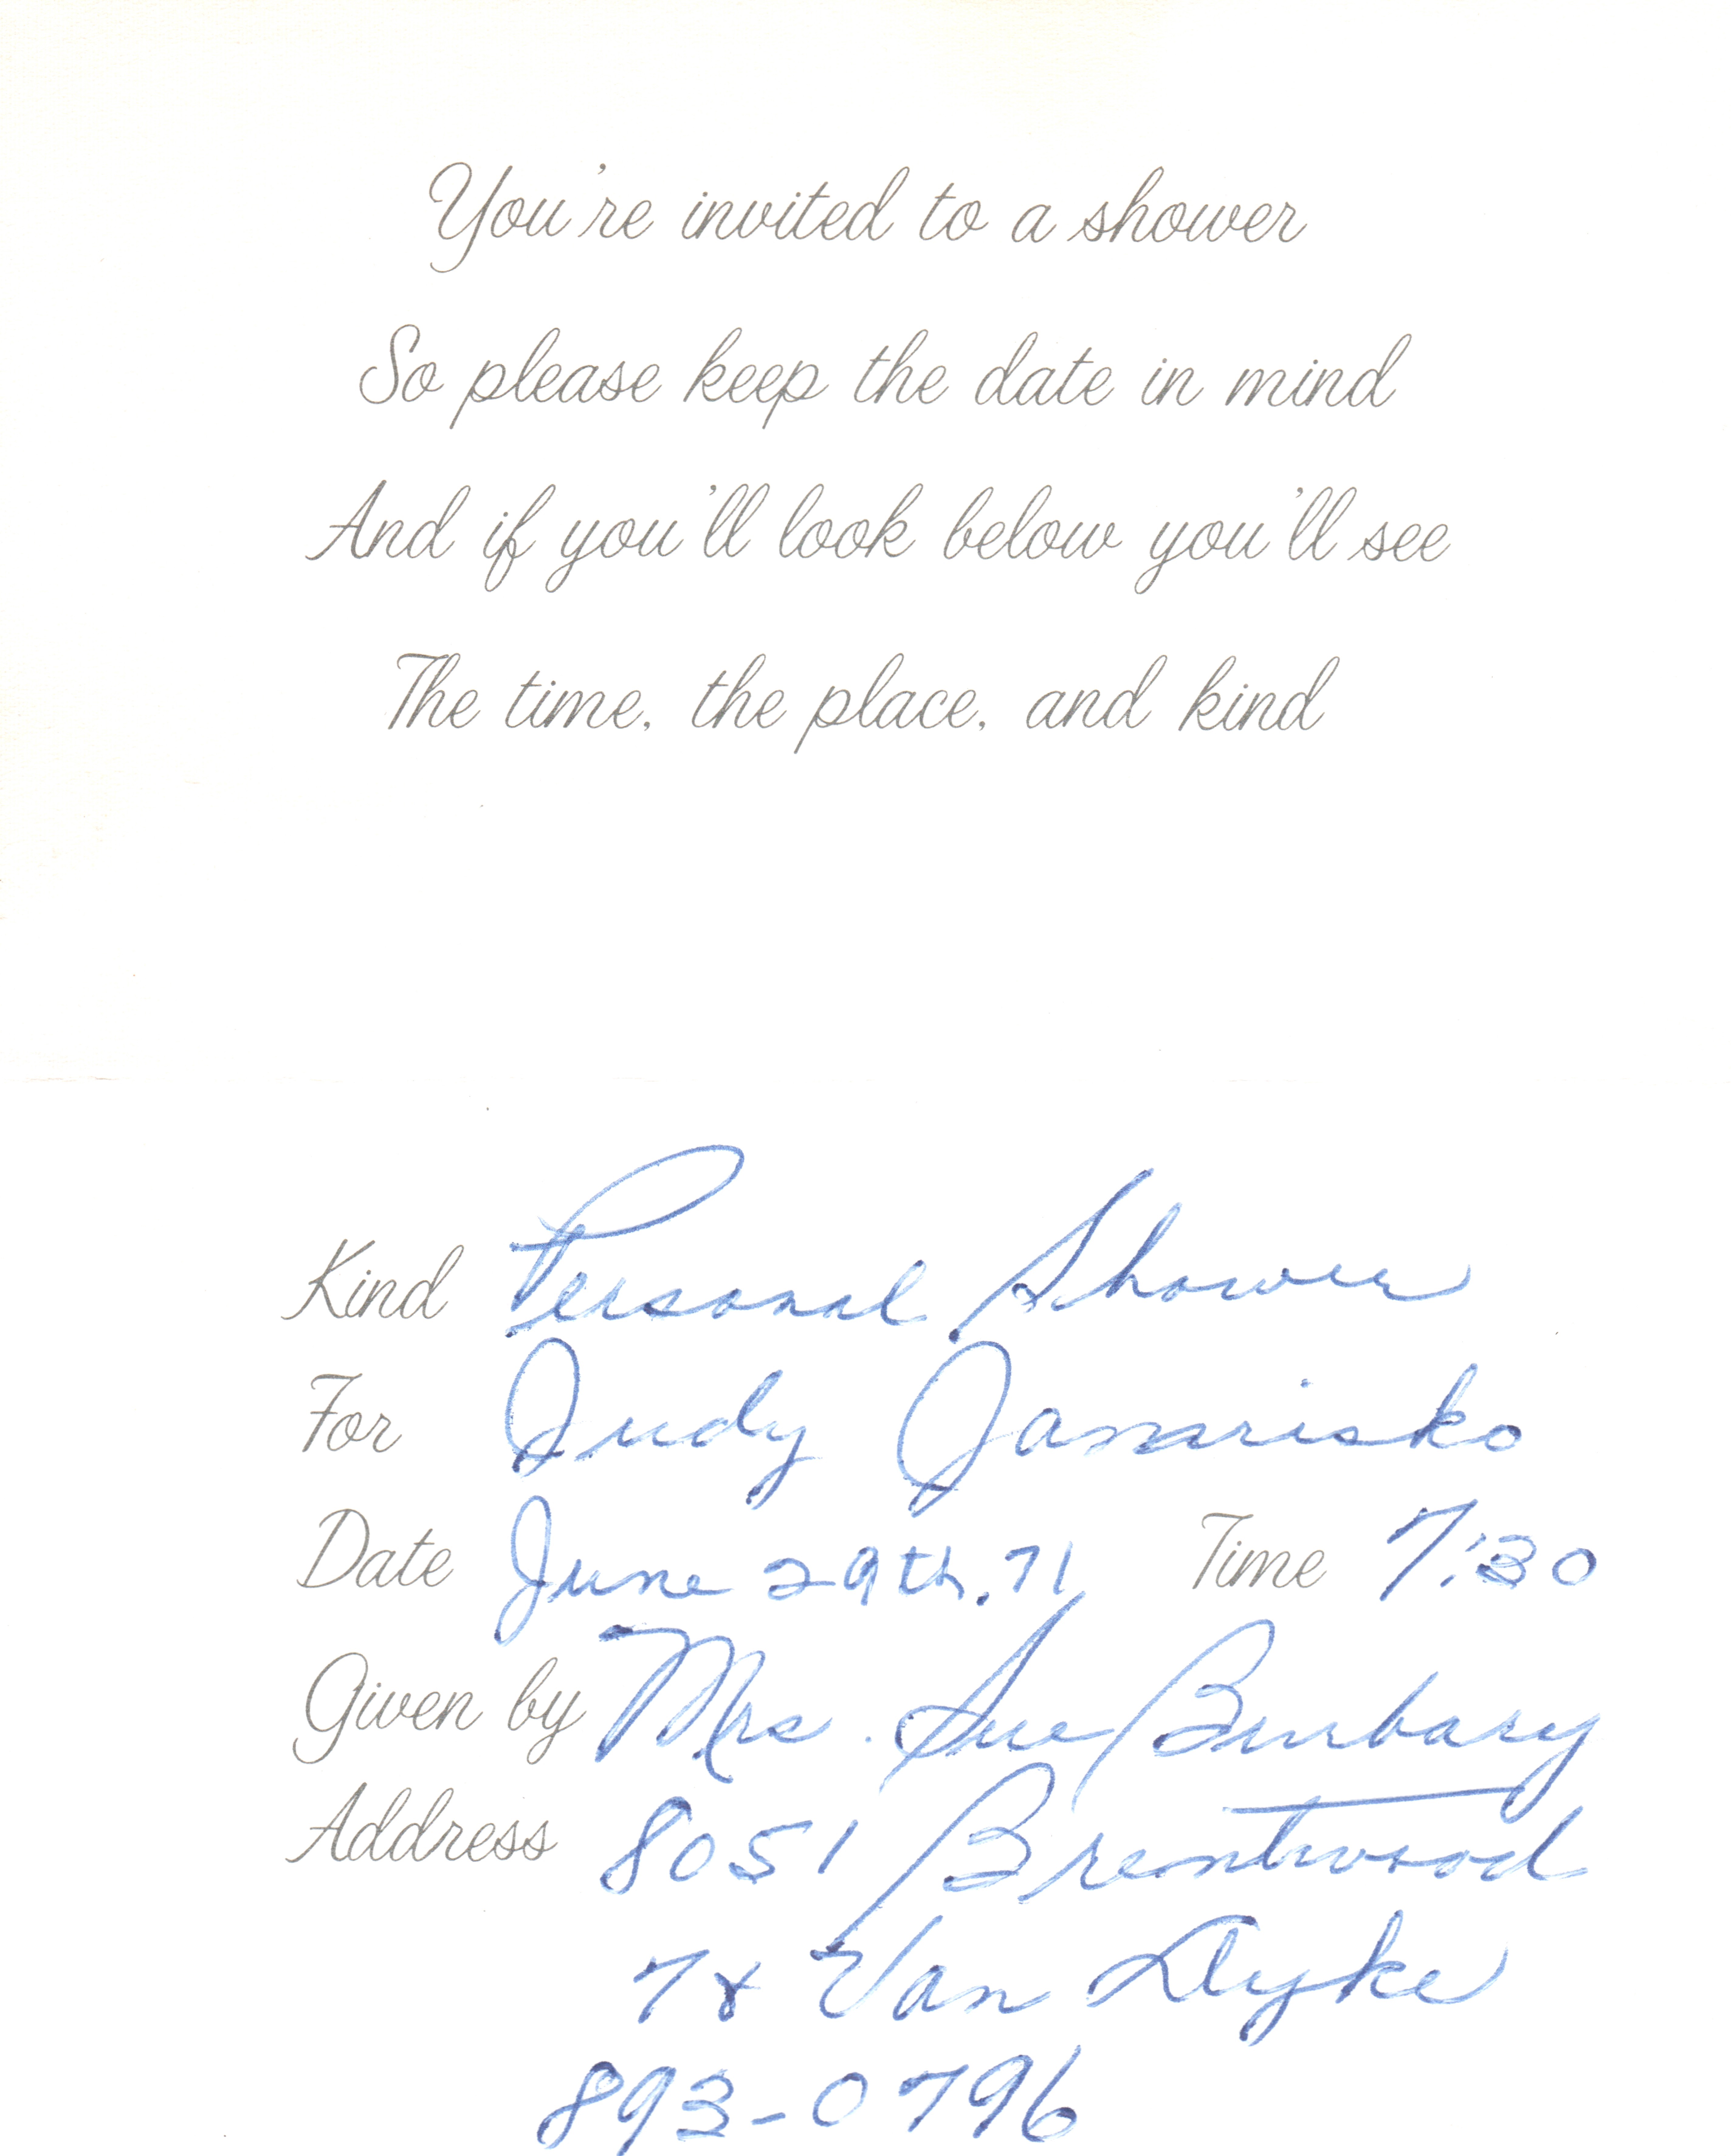 You're invited to a shower
So please keep the date in mind
And if you'll look below you'll see
The time, the place, and kind
Kind Personal Shower
For Judy Jamrisko
Date June 29th, 71 Time 7:30
Given by Mrs. Sue Burbary
Address 8051 Brentwood
7 & Van Dyke
893-0796